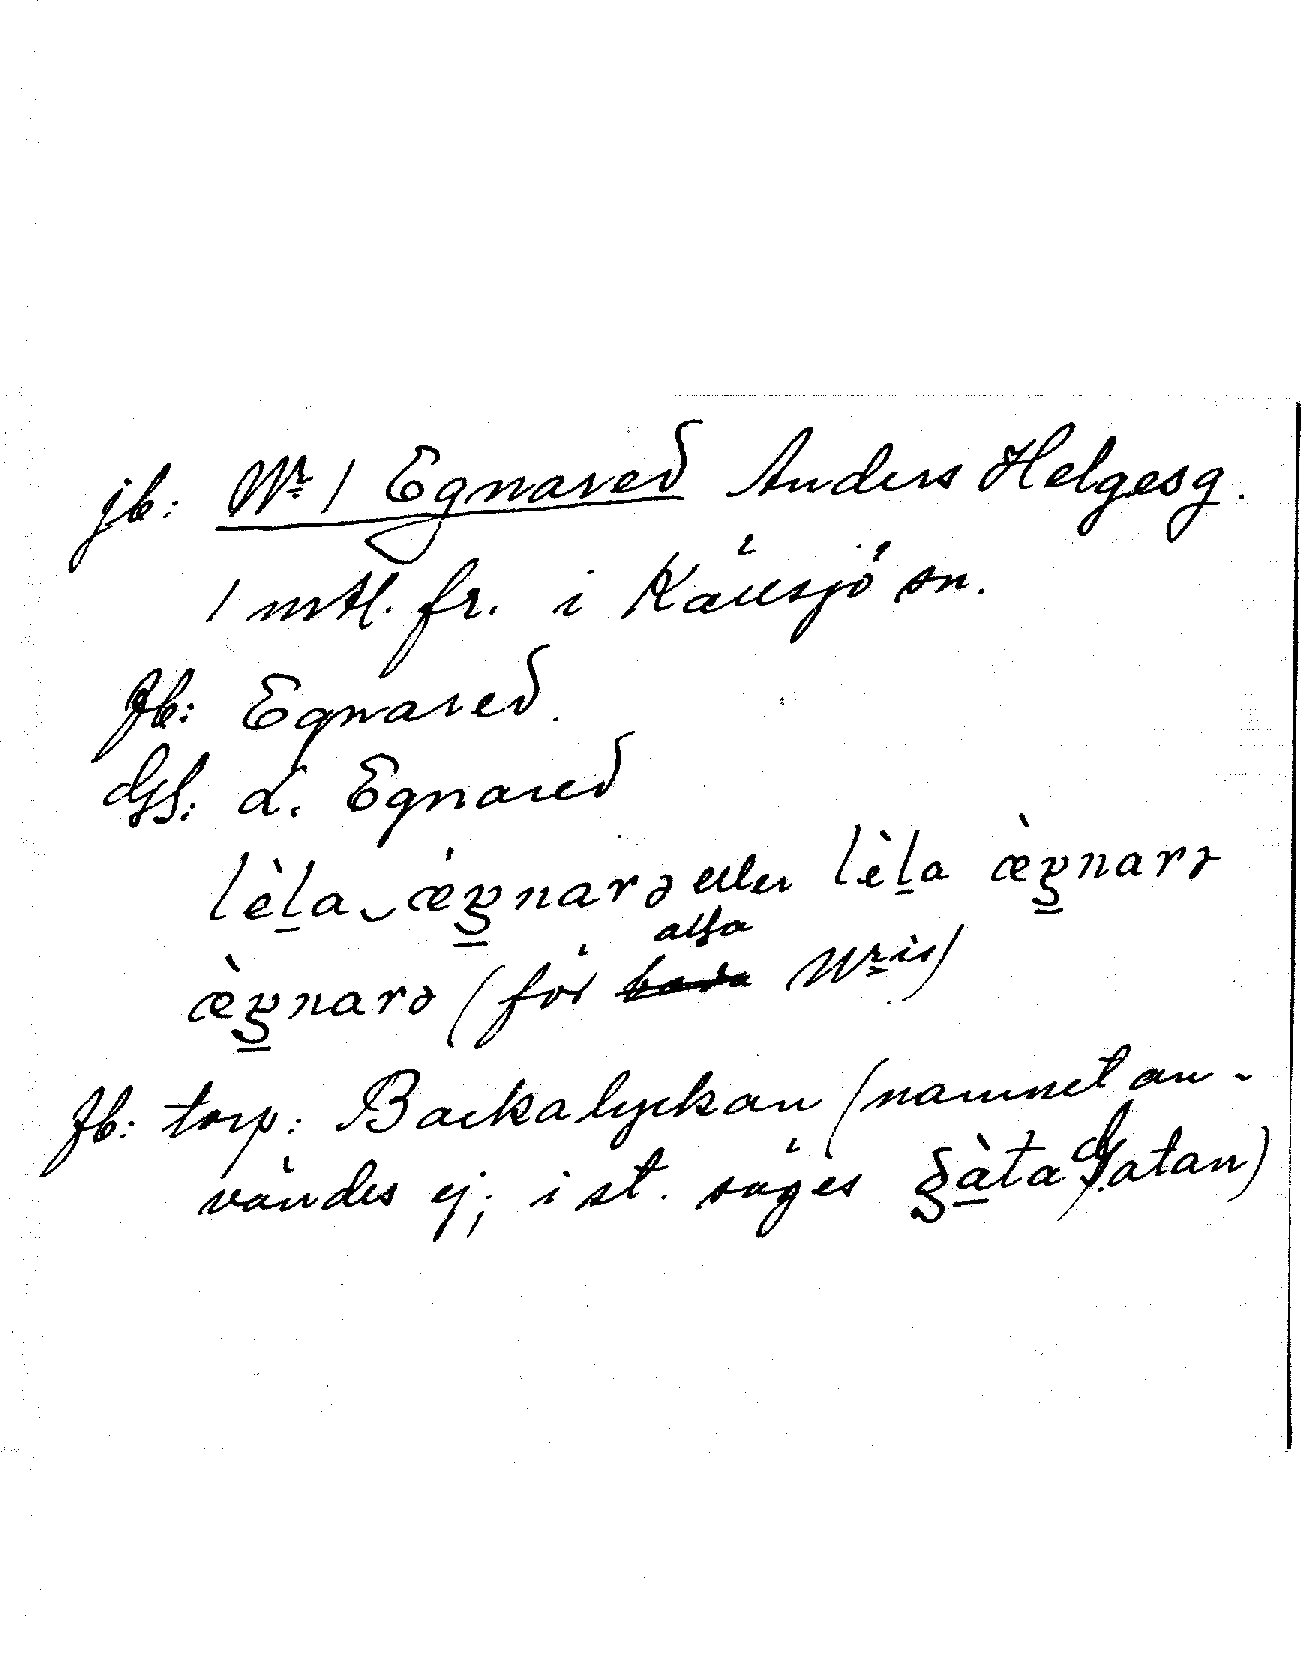 jb: Nr 1 Egnared Anders Helgesg.
1 mtl. fr. i Källsjö sn.
Jb: Egnared.
GS: L. Egnared
lèḻa‿æ̀g̱narə eller lèḻa æ̀g̱narə
æ̀g̱narə (för båda alla Nr is)
Jb: torp: Backalyckan (namnet an-
vändes ej; i st. säges gàṯa Gatan)